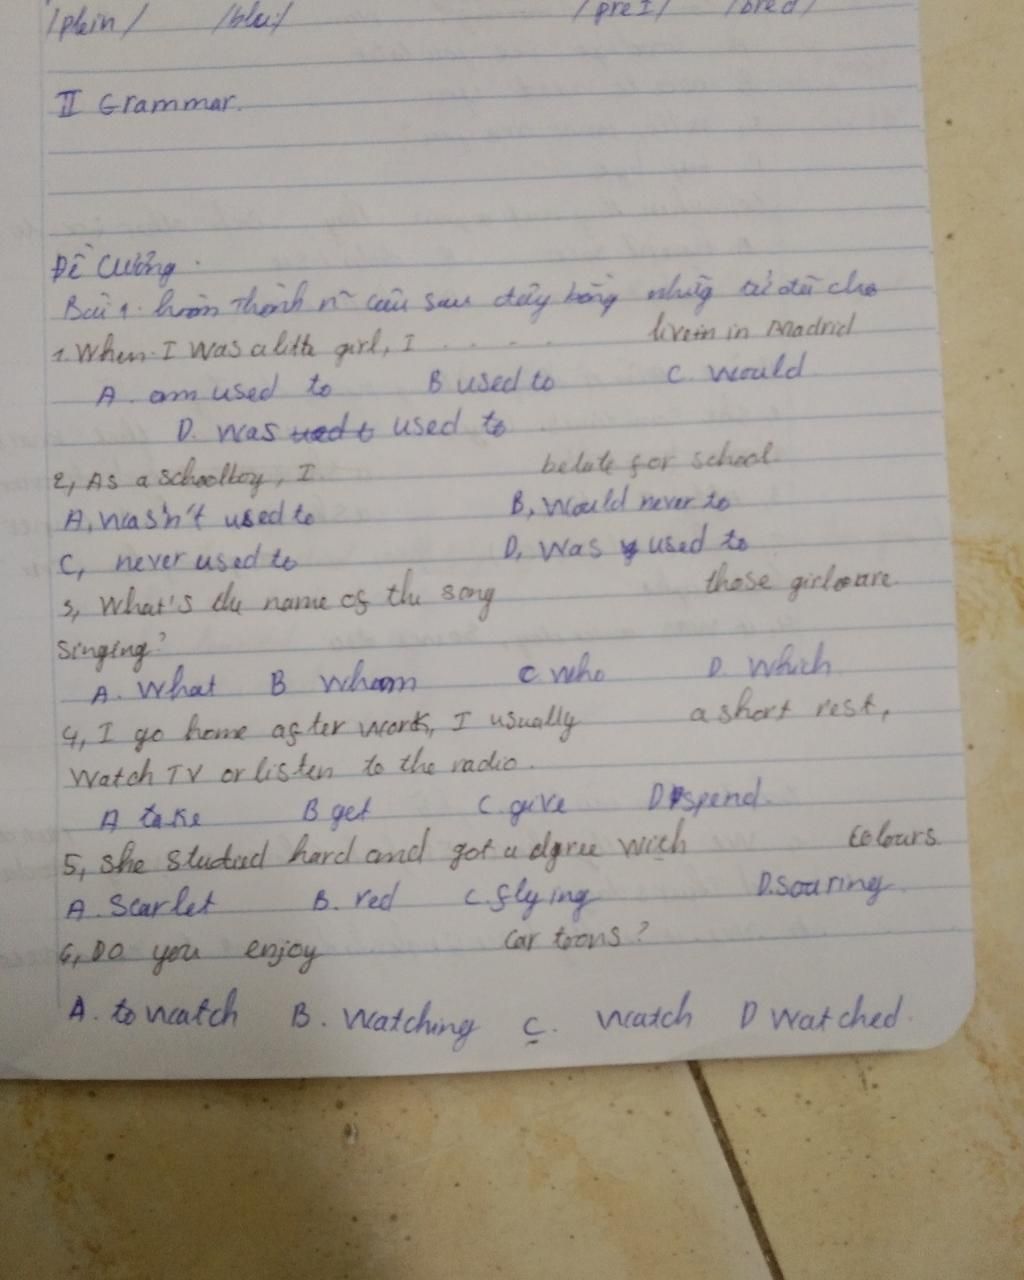 /plein/ /blu:/ /preI/ /bred/
II Grammar.
Đề Cương.
Bài 1. hoàn Thành n~ câu sau đây bằng những từ đã cho
1. When I was a little girl, I . . . . . live in in Madrid
A. am used to B used to C. would
D. was used to
2, As a schoolboy, I be late for school.
A, wasn't used to B, Would never to
C, never used to D, was used to
3, What's the name of the song those girls are
singing?
A. What B whom C who D. Which
4, I go home after work, I usually a short rest,
Watch TV or listen to the radio.
A take B get C. give D spend.
5, she studied hard and got a dgree with colours.
A. Scarlet B. red C. flying D. soaring
6, Do you enjoy Car toons?
A. to watch B. Watching C. watch D Watched.